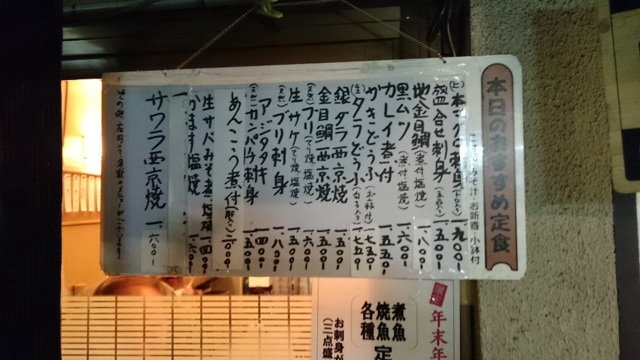 本日のおすすめ定食
お新香・小鉢付
本マグロ刺身 一、九〇〇
盛合せ刺身 一、五〇〇
地金目鯛(煮付・塩焼) 一、八〇〇
黒ムツ(煮付・塩焼) 一、六〇〇
カレイ煮付 一、五五〇
かきどうふ 一、七五〇
タラどうふ 一、七五〇
銀ダラ西京焼 一、五〇〇
金目鯛西京焼 一、五〇〇
ブリ(てり焼・塩焼) 一、六〇〇
生サケ(てり焼・塩焼) 一、五〇〇
ブリ刺身 一、八〇〇
アジタタキ 一、四〇〇
カンパチ刺身 一、五〇〇
あんこう煮付 二、〇〇〇
生サバみそ煮・塩焼 一、四〇〇
かます塩焼 一、五〇〇
サワラ西京焼 一、六〇〇
年末年
煮魚
焼魚定
各種
お刺身が
(三点盛